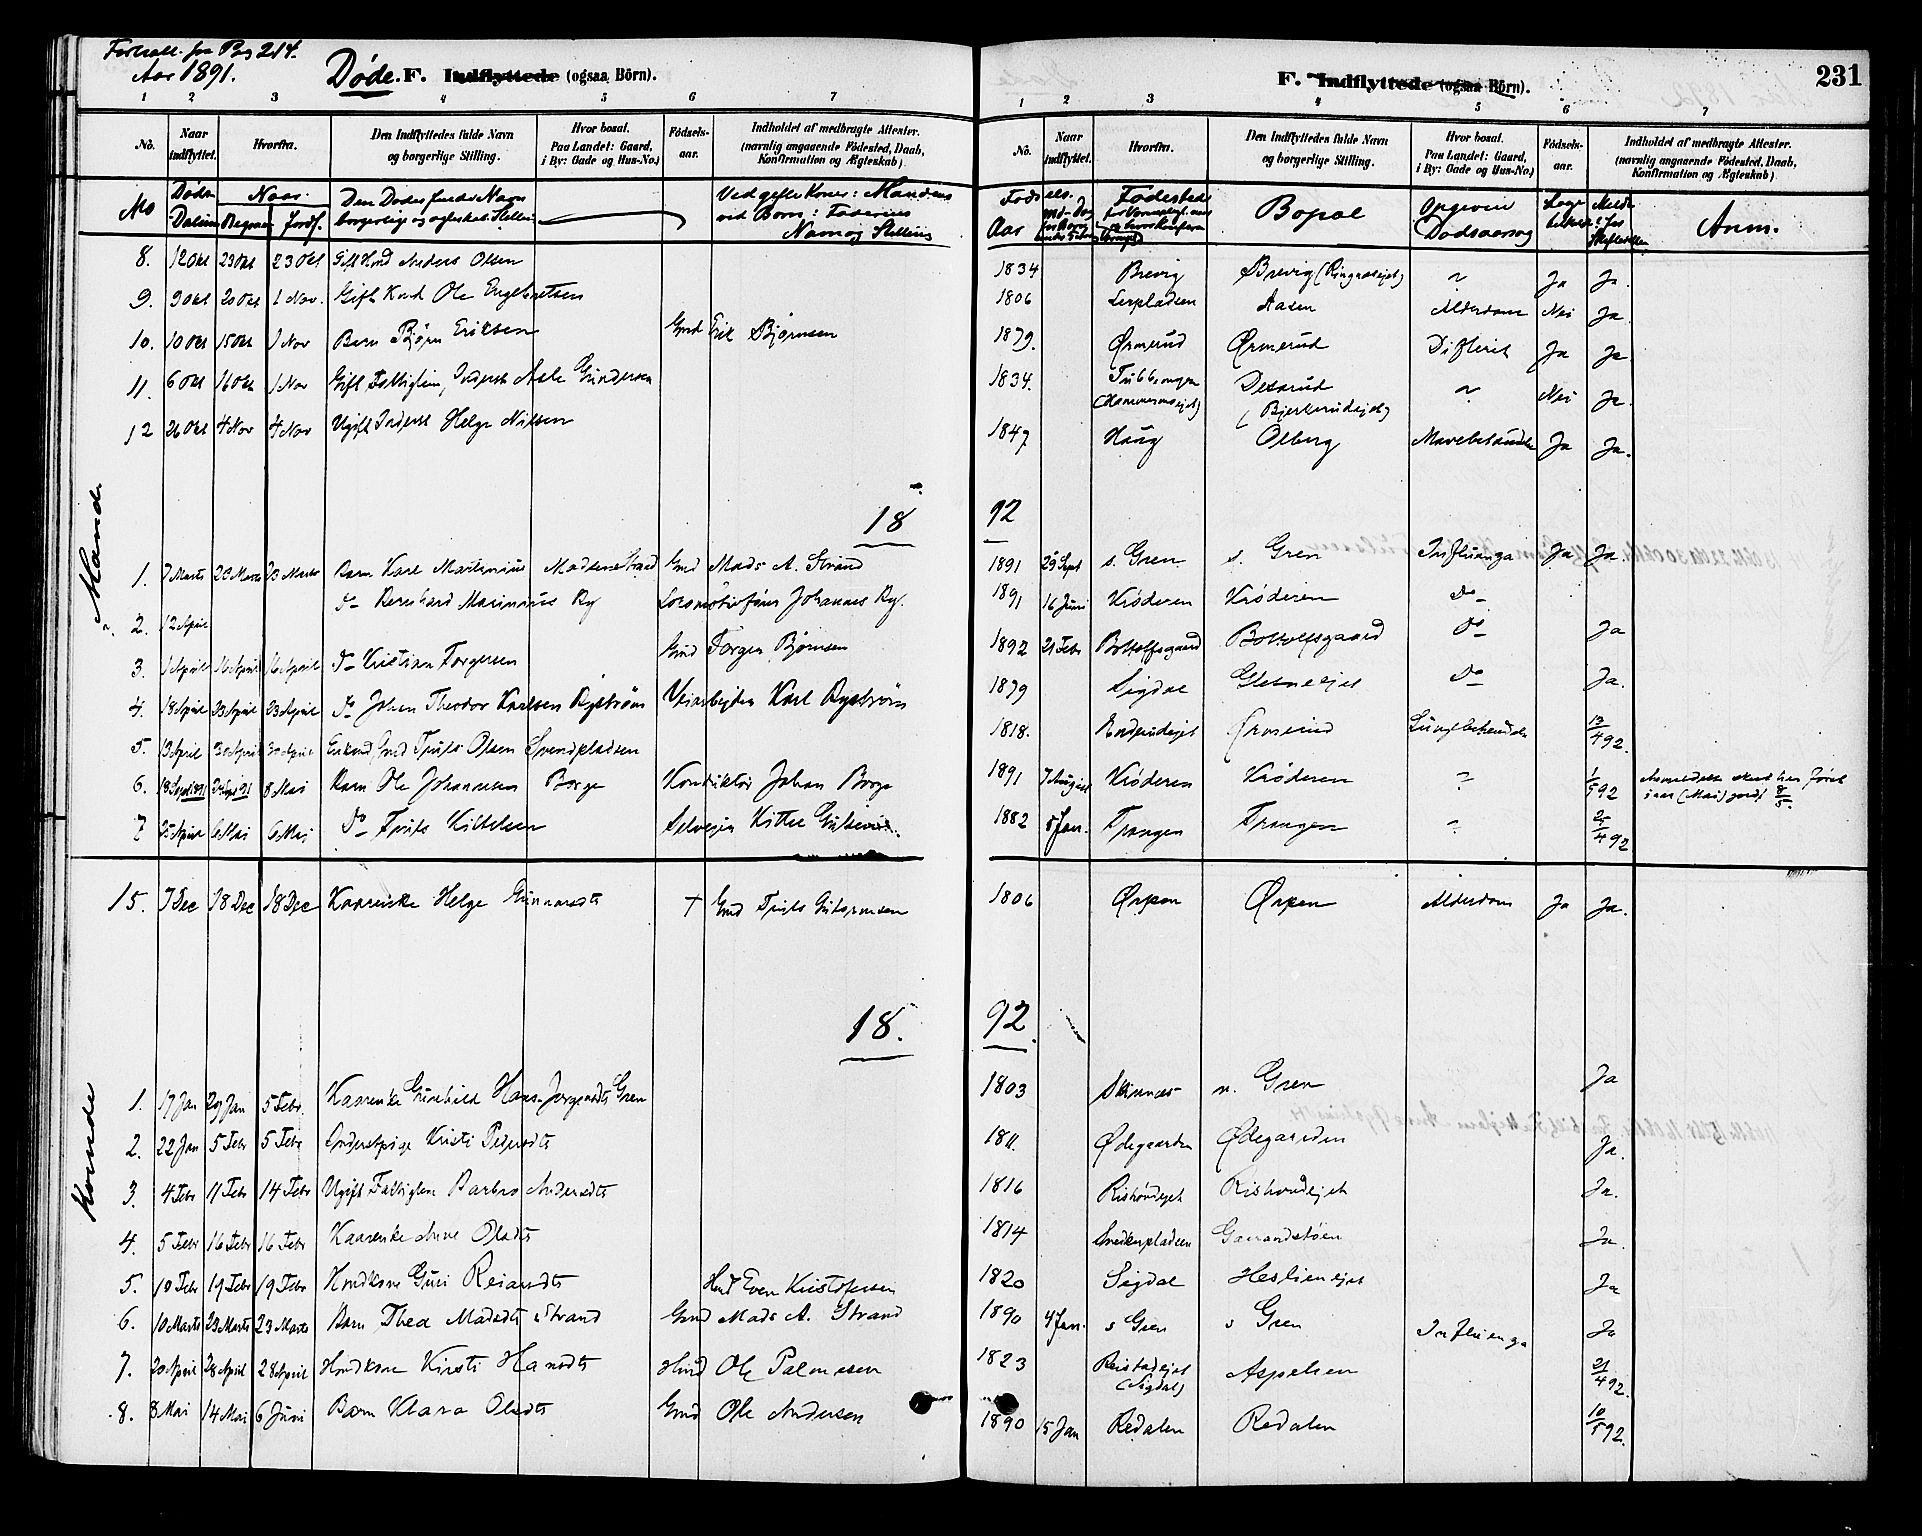 Fortsatt. fra Pag 214.
Aar 1891.
Døde. F. Indflyttede (ogsaa Börn).
F. Indflyttede (ogsaa Börn).
231
1 2 3 4 5 6 7
1 2 3 4 5 6 7
No. Naar indflyttet. Hvorfra. Den Indflyttedes fulde Navn og borgerlige Stilling. Hvor bosat. Paa Landet: Gaard, i By: Gade og Hus-No.) Födsels-aar. Indholdet af medbragte Attester. (navnlig angaaende Födested, Daab, Konfirmation og Ægteskab).
No. Naar indflyttet. Hvorfra. Den Indflyttedes fulde Navn og borgerlige Stilling. Hvor bosat. Paa Landet: Gaard, i By: Gade og Hus-No.) Födsels-aar. Indholdet af medbragte Attester. (navnlig angaaende Födested, Daab, Konfirmation og Ægteskab)
No Døds Datum Naar Begravet Jordf. Den Dødes fulde Navn borgerlig og ægteskab. Stilling Ved gifte Koner: Mandens ved Børn: Faderens Navn og Stilling
Aar Fødested Bopæl Opgiven Dødsaarsag Anm.
8. 12 Okt 23 Okt 23 Okt Gift Hmd Anders Olsen 1834 Brevig Brevig (Ringnæsejet) " Ja Ja.
9. 9 Okt 20 Okt 1 Nov. Gift Ole Engebretsen 1806 Lerpladsen Aasen Alderdom Nei Ja.
10. 10 Okt 15 Okt 1 Nov Barn Bjørn Eriksen Gmd Erik Bjørnsen 1879. Ørmerud Ørmerud Difterit Ja Ja
11. 6 Okt 16 Okt 1 Nov Gift Fattiglem, Inderst Asle Gundersen 1834. (Hammersejet) (Bjerkerudejet) " Nei Ja.
12 26 Okt 4 Nov 4 Nov Ugift Inderst Helge Nilsen 1847 Haug Olberg Mavebetændelse Ja Ja.
18 92
Mænd
1. 7 Marts 23 Marts 23 Marts Barn Karl Martinius Madsen Strand Gmd Mads A. Strand 1891 29 Sept s. Gren s. Gren Influenza Ja Ja
2. 12 April do Bernhard Marinius By Locomotivfører Johannes By. 1891 16 Juni Krøderen Krøderen do
3. 1 April 16 April 16 April do Kristian Torgersen Gmd Torgen Bjørnsen 1892 21 Febr Bottolfsgaard Bottolfsgaard do Ja
4. 18 April 23 April 23 April do Johan Theodor Karlsen Rystrøm Veiarbejder Karl Rystrøm 1879 Sigdal Glesneejet do Ja.
5. 13 April 30 April 30 April Enkmd Gmd Truls Olsen Svendpladsen 1818. Ørmerud Lungebetændelse 13/4 92.
6. 18 Sept 1891 24 Sept 91 8 Mai Barn Ole Johannesen Borge Konduktør Johan Borge 1891 7 August Krøderen Krøderen " 1/5 92 Anmeldelse skeet her først i aar (Mai) jordf. 8/5.
7 25 April 6 Mai 6 Mai do Truls Kittelsen Selveier Kittel 1882 8 Jan. Trangen Trangen " 25/4 92
15. 7 Dec 18 Dec 18 Dec Kaarenke Helge Gunnarsdt + Gmd Truls Gulbrandsen 1806 Ørpen Ørpen Alderdom Ja Ja.
18. 92.
Kvinder
1. 17 Jan 29 Jan 5 Febr. Kaarenke Gunhild Hans-Jørgensdt Gren 1803 Skinnæs n. Gren Ja
2. 22 Jan 5 Febr 5 Febr Inderstpige Kristi Pedersdt 1811. Ødegaarden Ødegaarden Ja.
3. 4 Febr 11 Febr 14 Febr Ugift Fattiglem Barbro Andersdt 1816 Rishovdejet Rishovdejet Ja.
4. 5 Febr 16 Febr 16 Febr Kaarenke Anne Olsdt 1814 Snekerpladsen Gaarandstøen Ja.
5. 10 Febr 19 Febr 19 Febr Hmdkone Guri Reiarsdt Hmd Even Kristofersen 1820 Sigdal Ja
6. 10 Marts 23 Marts 23 Marts Barn Thea Madsdt Strand Gmd Mads A. Strand 1890 4 Jan. s Gren s Gren Influenza Ja
7. 20 April 28 April 28 April Hmdkone Kirsti Hansdt Hmd Ole Palmesen 1823 Reistadejet (Sigdal) Aspelien 21/4 92.
8. 8 Mai 14 Mai 6 Juni Barn Klara Olsdt Gmd Ole Andersen 1890 15 Jan Redalen Redalen 10/5 92.